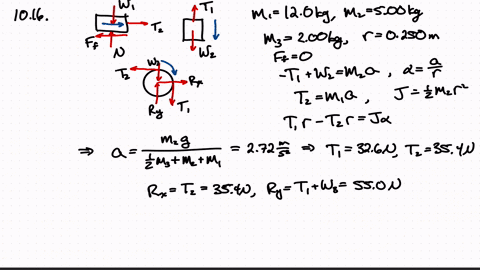 10.16.
W₁
T₂
F_f
N
T₁
W₂
m₁=12.0kg, m₂=5.00kg
m₃=2.00kg, r=0.250m
F_f=0
-T₁+W₂=m₂a, α=a/r
T₂=m₁a, J=½m₂r²
T₁r-T₂r=Jα
W₃
T₂
Rₓ
R_y
T₁
⇒ a = m₂g / (½m₃+m₂+m₁) = 2.72 m/s² ⇒ T₁=32.6N, T₂=35.4N
Rₓ=T₂=35.4N, R_y=T₁+W₃=55.0N